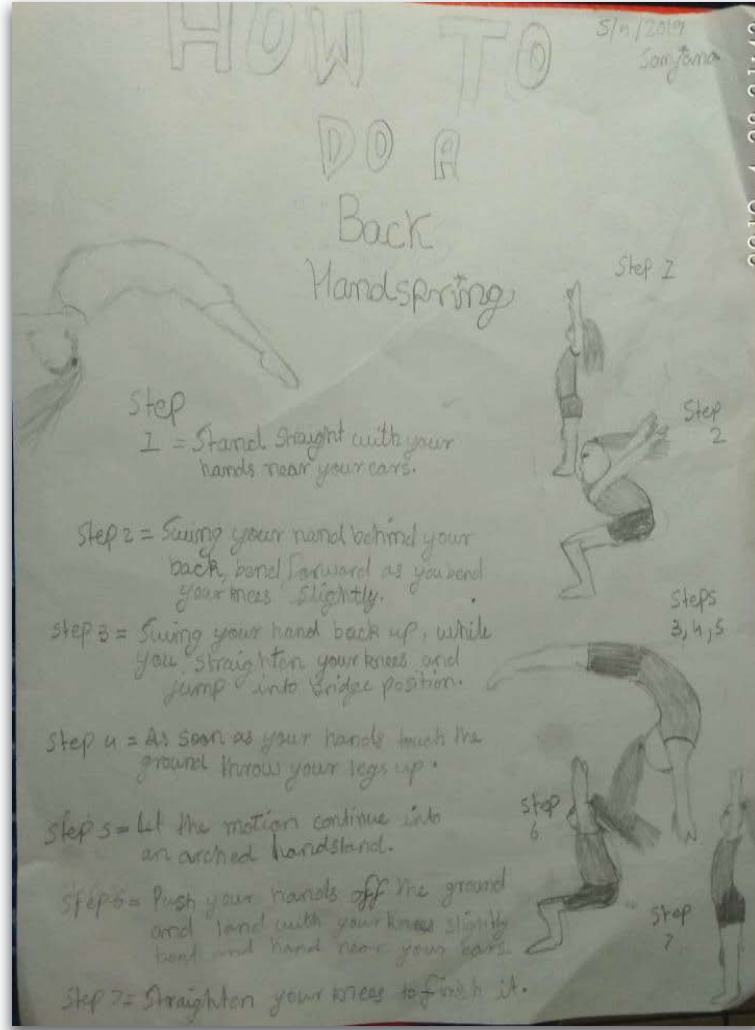 HOW TO
5/11/2019
Sanjana
DO A
Back
Handspring
Step 1
Step
2
Step
1 = Stand Straight with your
hands near your ears.
Step 2 = Swing your hand behind your
back, bend forward as you bend
your knees slightly.
Steps
3, 4, 5
Step 3 = Swing your hand back up, while
you straighten your knees and
jump into bridge position.
Step 4 = As soon as your hands touch the
ground throw your legs up.
Step 5 = Let the motion continue into
an arched handstand.
Step
6
Step 6 = Push your hands off the ground
and land with your knees slightly
bent and hand near your ears
Step
7
Step 7 = Straighten your knees to finish it.